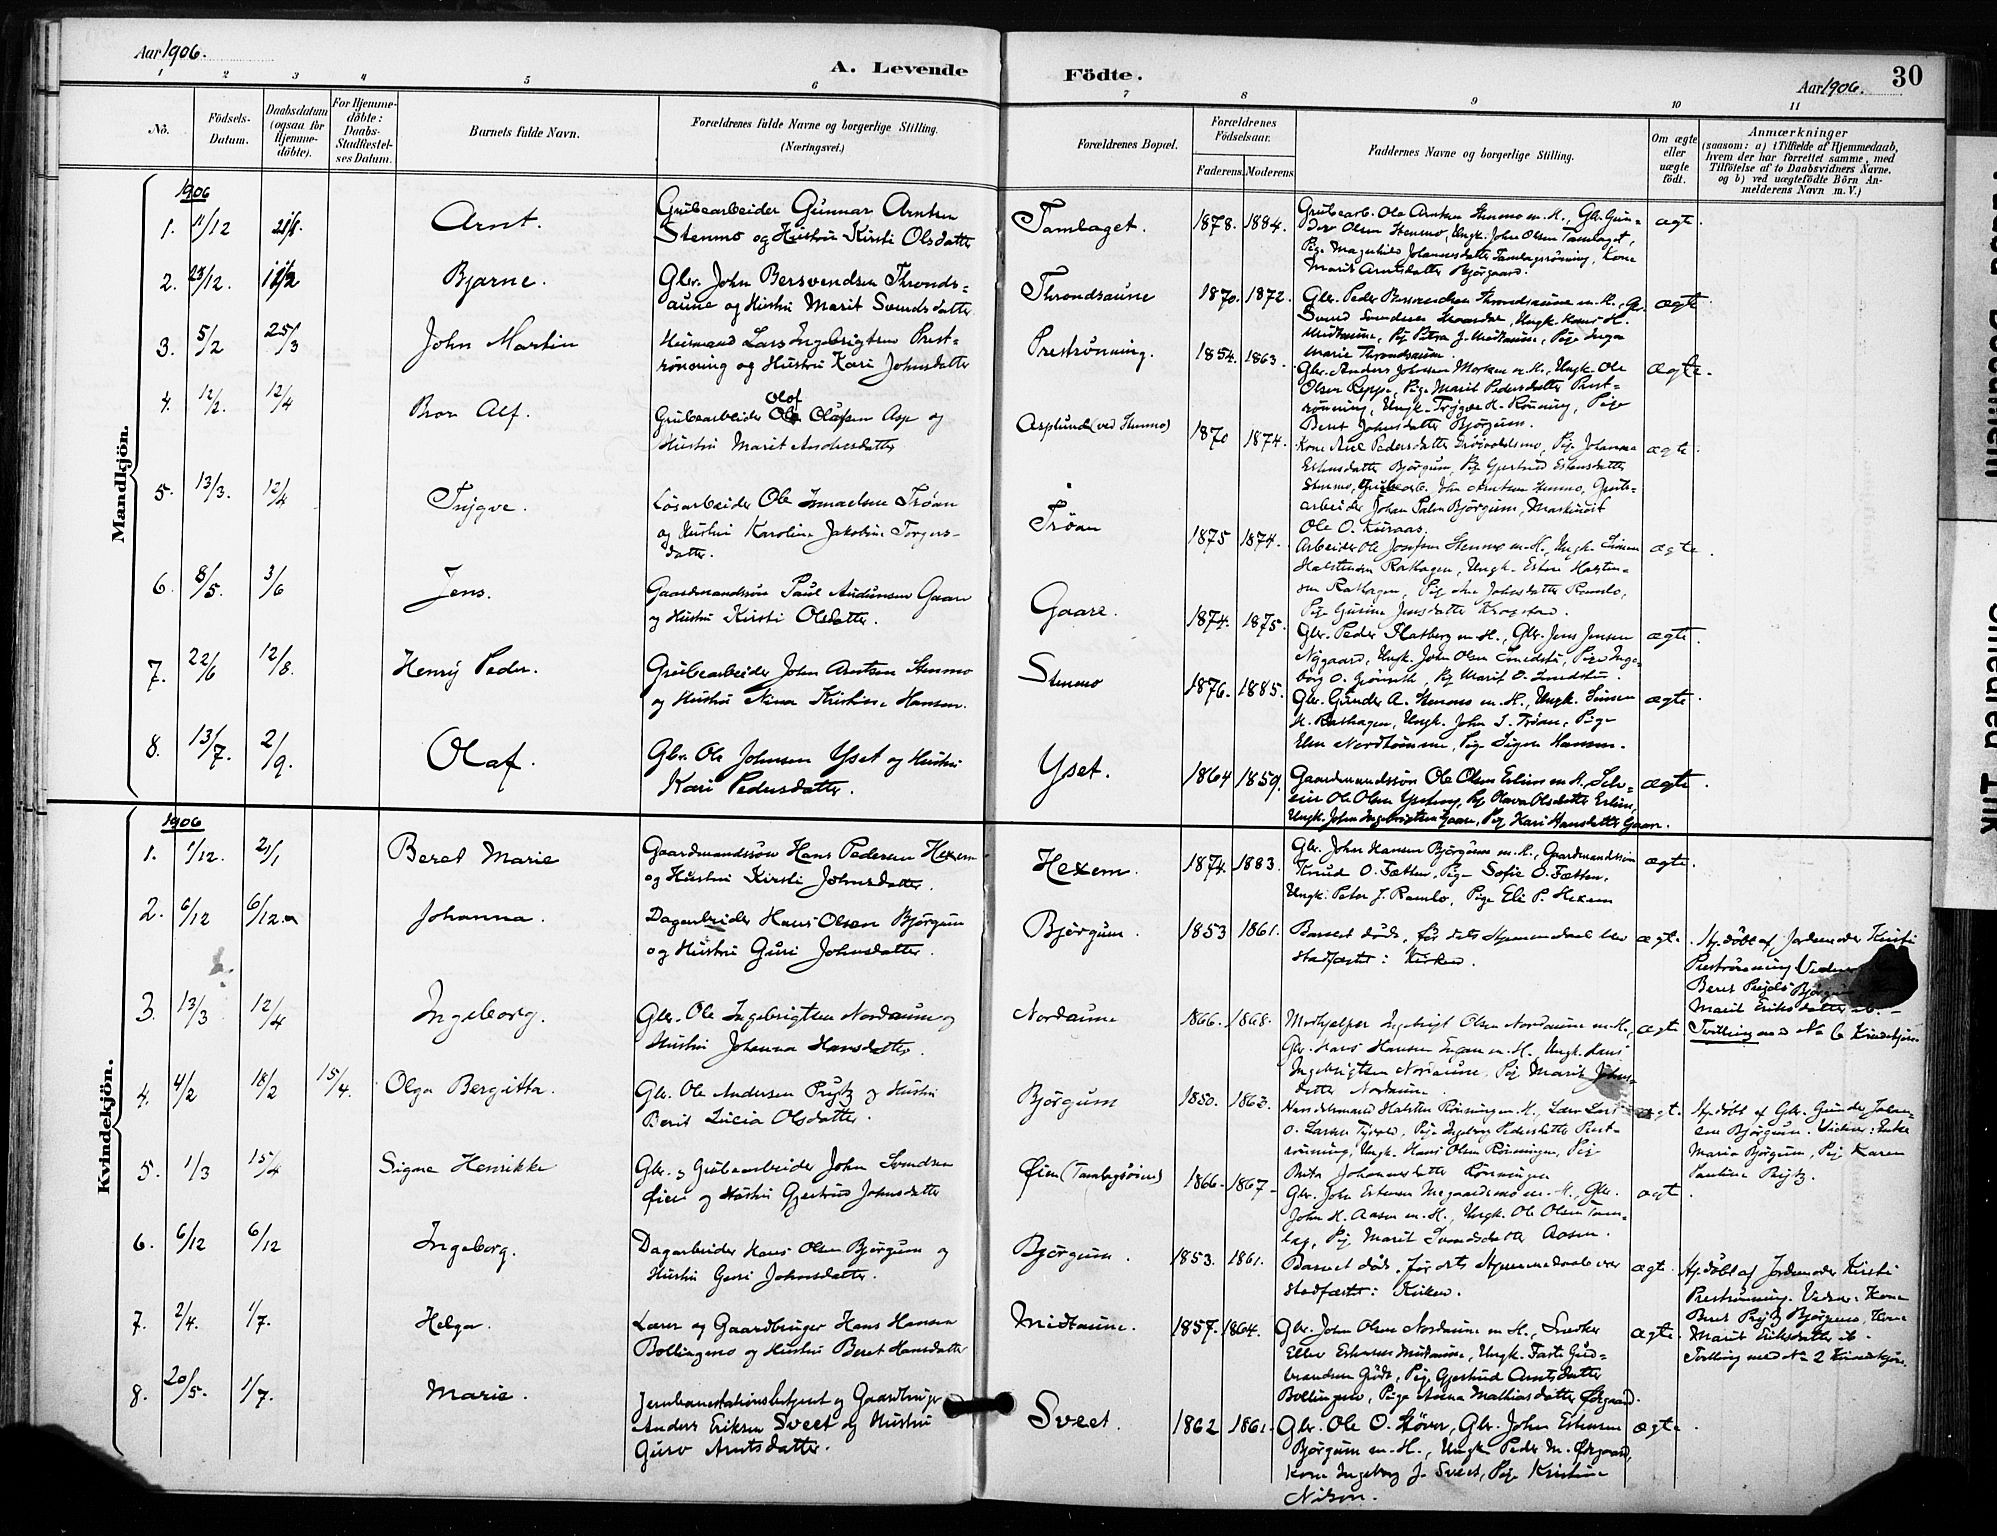 Aar 1906.
A. Levende
Födte.
Aar 1906.
30
1 2 3 4 5 6 7 8 9 10 11
No.
Födsels-
Datum.
Daabsdatum
(ogsaa for
Hjemme-
döbte).
For Hjemme-
döbte:
Daabs-
Stadfæstel-
ses Datum.
Barnets fulde Navn.
Forældrenes fulde Navne og borgerlige Stilling.
(Næringsvei.)
Forældrenes Bopæl.
Forældrenes
Födselsaar.
Faderens.
Moderens.
Faddernes Navne og borgerlige Stilling.
Om ægte
eller
uægte
født.
Anmærkninger
(saasom: a) i Tilfælde af Hjemmedaab,
hvem der har forrettet samme, med
Tilföielse af to Daabsvidners Navne,
og b) ved uægtefödte Börn An-
melderens Navn m. V.)
Mandkjön.
1906
1. 11/12
Arnt.
Grubearbeider Gunnar Arntsen
Stenmo og Hustru Kirsti Olsdatter
Tamlaget.
1878. 1884.
Grubearb. Ole Arntsen Stenmo m. H., Gbr. Gun-
der Olsen Stenmo, Ungk. John Olsen Tamlaget,
Pige Magnhild Johannesdatter Tamlagsrønning, Kone
Marit Arntsdatter Bjørgaard.
ægte
2. 23/12. 11/2
Bjarne.
Gbr. John Bersvendsen Thronds-
aune og Hustru Marit Svendsdatter
Throndsaune
1870. 1872.
Gbr. Peder Bersvendsen Throndsaune m. H., Gbr.
Svend Svendsen, Ungk. Hans H.
Midtaune, Pig Petra J. Midtaune, Pige Inga
Marie Throndsaune.
ægte
3. 5/2 25/3
John Martin
Husmand Lars Ingebrigtsen Prest-
rönning og Hustru Kari Johnsdatter
Prestrønning.
1854. 1863.
Gbr. Anders Johnsen Morken m. H., Ungk. Ole
Olsen Reppe, Pige Marit Pedersdatter Prest-
rönning, Ungk. Trygve H. Rönning, Pige
Beret Johnsdatter Björgum.
ægte.
4. 12/2. 12/4
Bror Alf.
Olof
Grubearbeider Ole Olufsen Asp og
Hustru Marit Andersdatter
Asplund (ved Stenmo)
1870 1874.
Kone Ane Pedersdatter, Pige Johanna
Estensdatter Björgum, Pig Gjertrud Estensdatter
Stenmo, Grubearb. John Arntsen Stenmo, Grube-
arbeider Johan Björgum, Maskinist
Ole O. Kuraas.
ægte.
5. 13/3. 12/4
Trygve.
Løsarbeider Ole Ismaelsen Trøan
og Hustru Karoline Jakobine Torgers-
datter.
Trøan
1875 1874.
Arbeider Ole Josefsen Stenmo m. H., Ungk. Simen
Halstensen Rathagen, Ungk. Esten Halsten-
sen Rathagen, Pige Ane Johnsdatter Ramlo,
Pige Gurine Jensdatter Krogstad.
ægte.
6. 8/5. 3/6
Jens.
Gaardmandssön Paul Audunsen Gaare
og Hustru Kirsti Olsdatter.
Gaare.
1874. 1875.
Gbr. Peder Flatberg m. H., Gbr. Jens Jensen
Nygaard, Ungk. John Olsen Smedstu, Pige Inge-
borg O. Grönseth, Pig Marit O. Smedstu.
ægte.
7. 22/6 12/8.
Henry Peder.
Grubearbeider John Arntsen Stenmo
og Hustru Nina Kristine Hansen.
Stenmo
1876. 1885.
Gbr. Gunder A. Stenmo m. H., Ungk. Simen
H. Rathagen, Ungk. John I. Trøan, Pige
Elen Nordtömme, Pige Signe Hansen.
ægte.
8. 13/7. 2/9.
Olaf.
Gbr. Ole Johnsen Yset og Hustru
Kari Pedersdatter.
Yset.
1864 1859.
Gaardmandssön Ole Olsen Eslien m. H., Selv-
eier Ole Olsen, Pig Olava Olsdatter Eslien,
Ungk. John Ingebrigtsen Gaare, Pig Kari Hansdatter Gaare.
ægte
Kvindekjön.
1906
1. 1/12. 21/1
Beret Marie
Gaardmandssön Hans Pedersen Hexem
og Hustru Kirsti Johnsdatter.
Hexem.
1874. 1883.
Gbr. John Hansen Björgum m. H., Gaardmandssön
Knud O. Fætten, Pige Sofie O. Fætten,
Ungk. Peter J. Ramlo, Pige Eli P. Hexem
ægte.
2. 6/12 6/12
Johanna.
Dagarbeider Hans Olsen Björgum
og Hustru Guri Johnsdatter.
Bjørgum.
1853 1861.
Barnet döde, för dets Hjemmedaab blev
stadfæstet i Kirken.
ægte.
Hj.döbt af Jordemoder Kirsti
Preströnning. Vidner
Beret Prytz Björgum
Marit Eriksdatter ib. –
Tvilling med No 6 Kvindekjön
3. 13/3 12/4
Ingeborg.
Gbr. Ole Ingebrigtsen Nordaune og
Hustru Johanna Hansdatter.
Nordaune
1866. 1868.
Ingebrigt Olsen Nordaune m. H.,
Gbr. Hans Hansen Engan m. H., Ungk. Hans
Ingebrigtsen Nordaune, Pig Marit Johns-
datter Nordaune
ægte
4. 4/2 18/2 15/4.
Olga Bergitta.
Gbr. Ole Andersen Prytz og Hustru
Berit Lucia Olsdatter.
Bjørgum
1850. 1863.
Handelsmand Halsten Rönningen m. H., Lærer Lars
O. Larsen, Pige Ingeborg Pedersdatter Prest-
rönning, Ungk. Hans Olsen Rönningen, Pige
Johannesdatter Rönningen
ægte.
Hj.döbt af Gbr. Gunder John-
sen Björgum. Vidner: Enke
Maria Björgum, Pig Karen
Pauline Prytz.
5. 1/3 15/4
Signe Henrikke
Gbr. og Grubearbeider John Svendsen
Øien og Hustru Gjertrud Johnsdatter
Øien (Tamlagsøien)
1866. 1867.
Gbr. John Estensen m. H., Gbr.
John H. Aasen m. H., Ungk. Ole Olsen Tam-
lag, Pig Marit Svendsdatter Aasen.
ægte.
6. 6/12 6/12
Ingeborg.
Dagarbeider Hans Olsen Björgum og
Hustru Guri Johnsdatter.
Bjørgum.
1853. 1861.
Barnet döde, för dets Hjemmedaab var
stadfæstet i Kirken.
ægte.
Hj.döbt af Jordemoder Kirsti
Preströnning. Vidner: Kone
Beret Prytz Björgum, Kone
Marit Eriksdatter ib.
Tvilling med No 2 Kvindekjön.
7. 2/4. 1/7.
Helga.
Lærer og Gaardbruger Hans Hansen
Bollingmo og Hustru Beret Hansdatter
Midtaune.
1857. 1864.
Gbr. John Olsen Nordaune m H., Snedker
Ellev Estensen Midtaune, Ungk. Gud-
brandsen, Pige Gjertrud Arntsdatter
Bollingmo, Pige Anna Mathiasdatter Ørgaard.
ægte.
8. 20/5. 1/7.
Marie.
Jernbanestationsbetjent og Gaardbruger
Anders Eriksen Sveet og Hustru
Guro Arntsdatter.
Sveet.
1862 1861.
Gbr. Ole O. Støver, Gbr. John Estensen
Bjørgum m. H., Ungk. Peder M. Ørgaard,
Kone Ingeborg J. Sveet, Pige Kristine
Nilsen.
ægte.